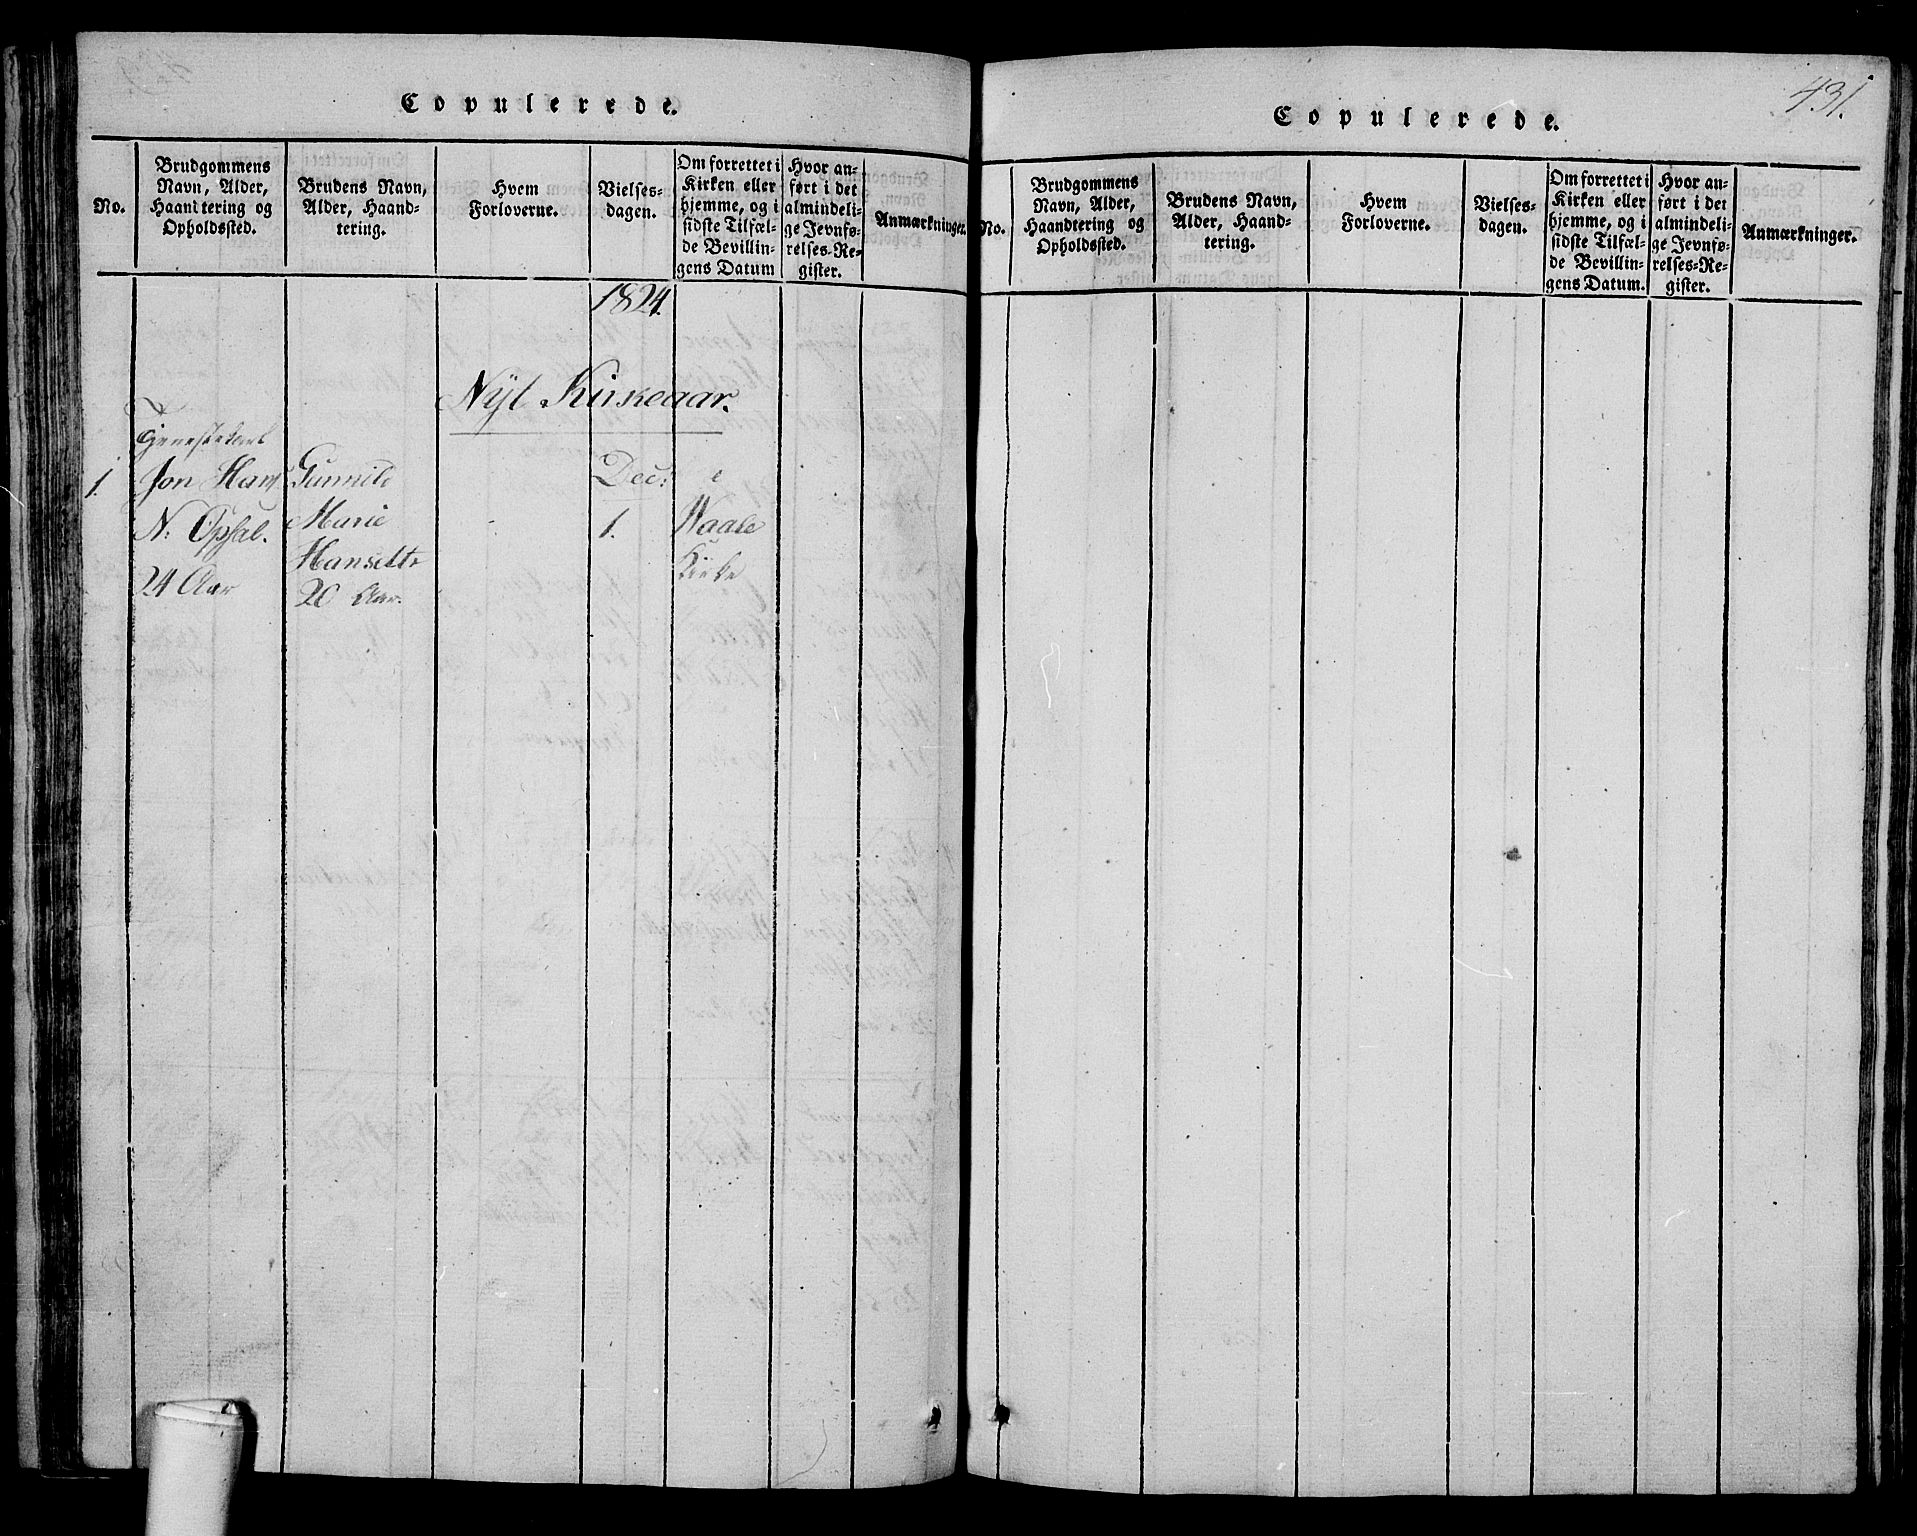 Copulerede.
No.
Brudgommens
Navn, Alder,
Haandtering og
Opholdssted.
Brudens Navn,
Alder, Haand-
tering.
Hvem
Forloverne.
Vielses-
dagen.
Om forrettet i
Kirken eller
hjemme, og i
sidste Tilfæl-
de Bevillin-
gens Datum
Hvor an-
ført i det
almindeli-
ge Jevnfø-
relses-Re-
gister.
Anmærkninger.
1824.
Nyt Kirkeaar.
1.
Jon Hans
N: Opsal.
24 Aar
Gunnild
Marie
Hansdtr
20 Aar.
Dec:
1.
Waale
Kirke
431.
Copulerede.
No.
Brudgommens
Navn, Alder,
Haandtering og
Opholdssted.
Brudens Navn,
Alder, Haand-
tering.
Hvem
Forloverne.
Vielses-
dagen.
Om forrettet i
Kirken eller
hjemme, og i
sidste Tilfæl-
de Bevillin-
gens Datum.
Hvor an-
ført i det
almindeli-
ge Jevnfø-
relses-Re-
gister.
Anmærkninger.